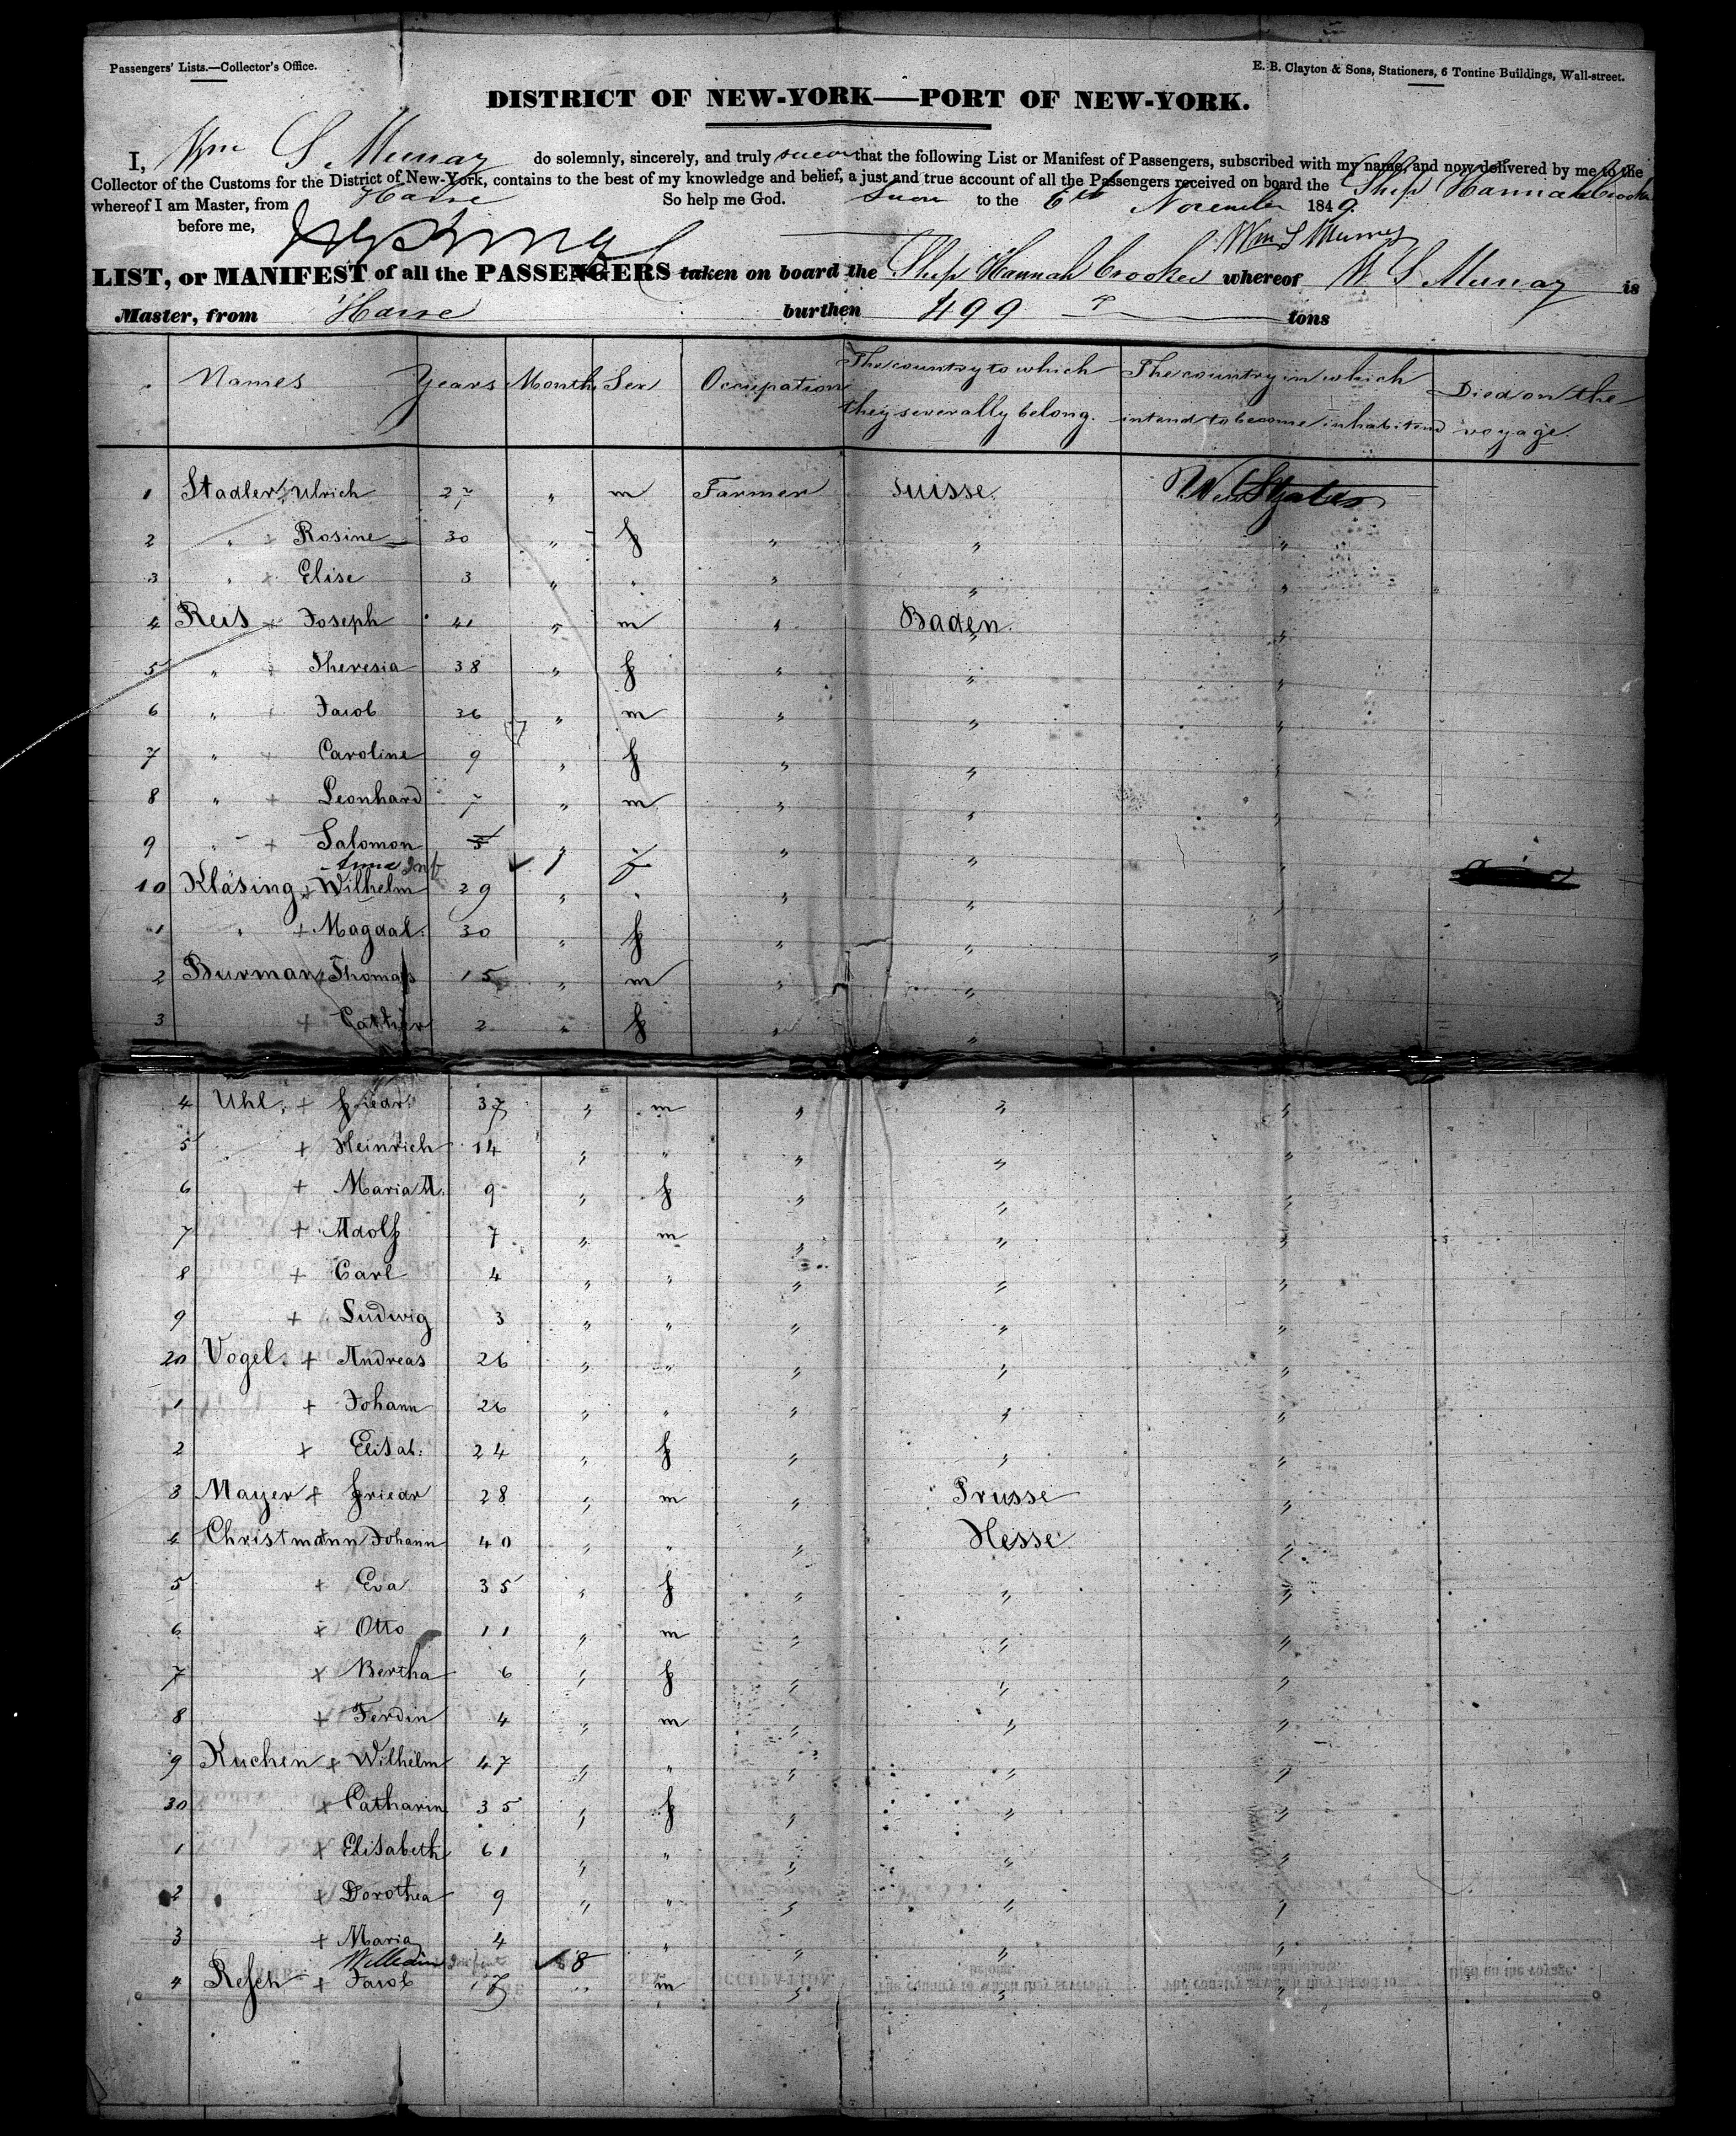 Passengers' Lists.—Collector's Office.
E. B. Clayton & Sons, Stationers, 6 Tontine Buildings, Wall-street.
DISTRICT OF NEW-YORK—PORT OF NEW-YORK.
I, Wm S Murray do solemnly, sincerely, and truly swear that the following List or Manifest of Passengers, subscribed with my name, and now delivered by me to the
Collector of the Customs for the District of New-York, contains to the best of my knowledge and belief, a just and true account of all the Passengers received on board the Ship Hannah Crooker
whereof I am Master, from Havre So help me God. Sworn to the 6th November 1849.
before me,
Wm S Murray
LIST, or MANIFEST of all the PASSENGERS taken on board the Ship Hannah Crooker whereof W S Murray is
Master, from Havre burthen 499 tons
Names Years Month Sex Occupation The country to which they severally belong. The country in which intend to become inhabitend Died on the voyage.
1 Stadler, Ulrich 27 " m Farmer Suisse.
2 " + Rosine 30 " f " " "
3 " + Elise 3 " " " " "
4 Reis + Joseph 41 " m " Baden. "
5 " + Theresia 38 " f " " "
6 " + Jacob 36 " m " " "
7 " + Caroline 9 " f " " "
8 " + Leonhard 7 " m " " "
9 " + Salomon 5 " " " " "
Anna Inf 1 f
10 Kläsing + Wilhelm 29 " " " " "
1 " + Magdal. 30 " f " " "
2 Burman, Thomas 15 " m " "
3 + Cather 2 " f " "
4 Uhl, + friedr. 37 " m " " "
5 " + Heinrich 14 " " " " "
6 + Maria A. 9 " f " " "
7 + Adolf 7 " m " " "
8 + Carl 4 " " " " "
9 + Ludwig 3 " " " " "
20 Vogel. + Andreas 26 " " " " "
1 + Johann 26 " " " " "
2 + Elisab: 24 " f " " "
3 Mayer + friedr 28 " m " Prusse "
4 Christmann Johann 40 " " " Hesse "
5 + Eva 35 " f " " "
6 + Otto 11 " m " " "
7 + Bertha 6 " f " " "
8 + Ferdin 4 " m " " "
9 Kuchen + Wilhelm 47 " " " " "
30 + Catharin 35 " f " " "
1 + Elisabeth 61 " " " " "
2 + Dorothea 9 " " " " "
3 + Maria 4 " " " " "
William Infant 8
4 Resch + Jacob 17 " m " " "